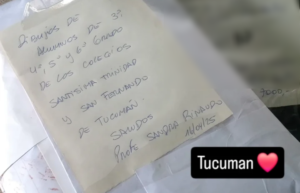 DIBUJOS DE
ALUMNOS DE 3º
4º, 5º y 6º GRADO
DE LOS COLEGIOS
SANTISIMA TRINIDAD
Y SAN FERNANDO
DE TUCUMAN.
SALUDOS
Profe SANDRA
Tucuman ❤